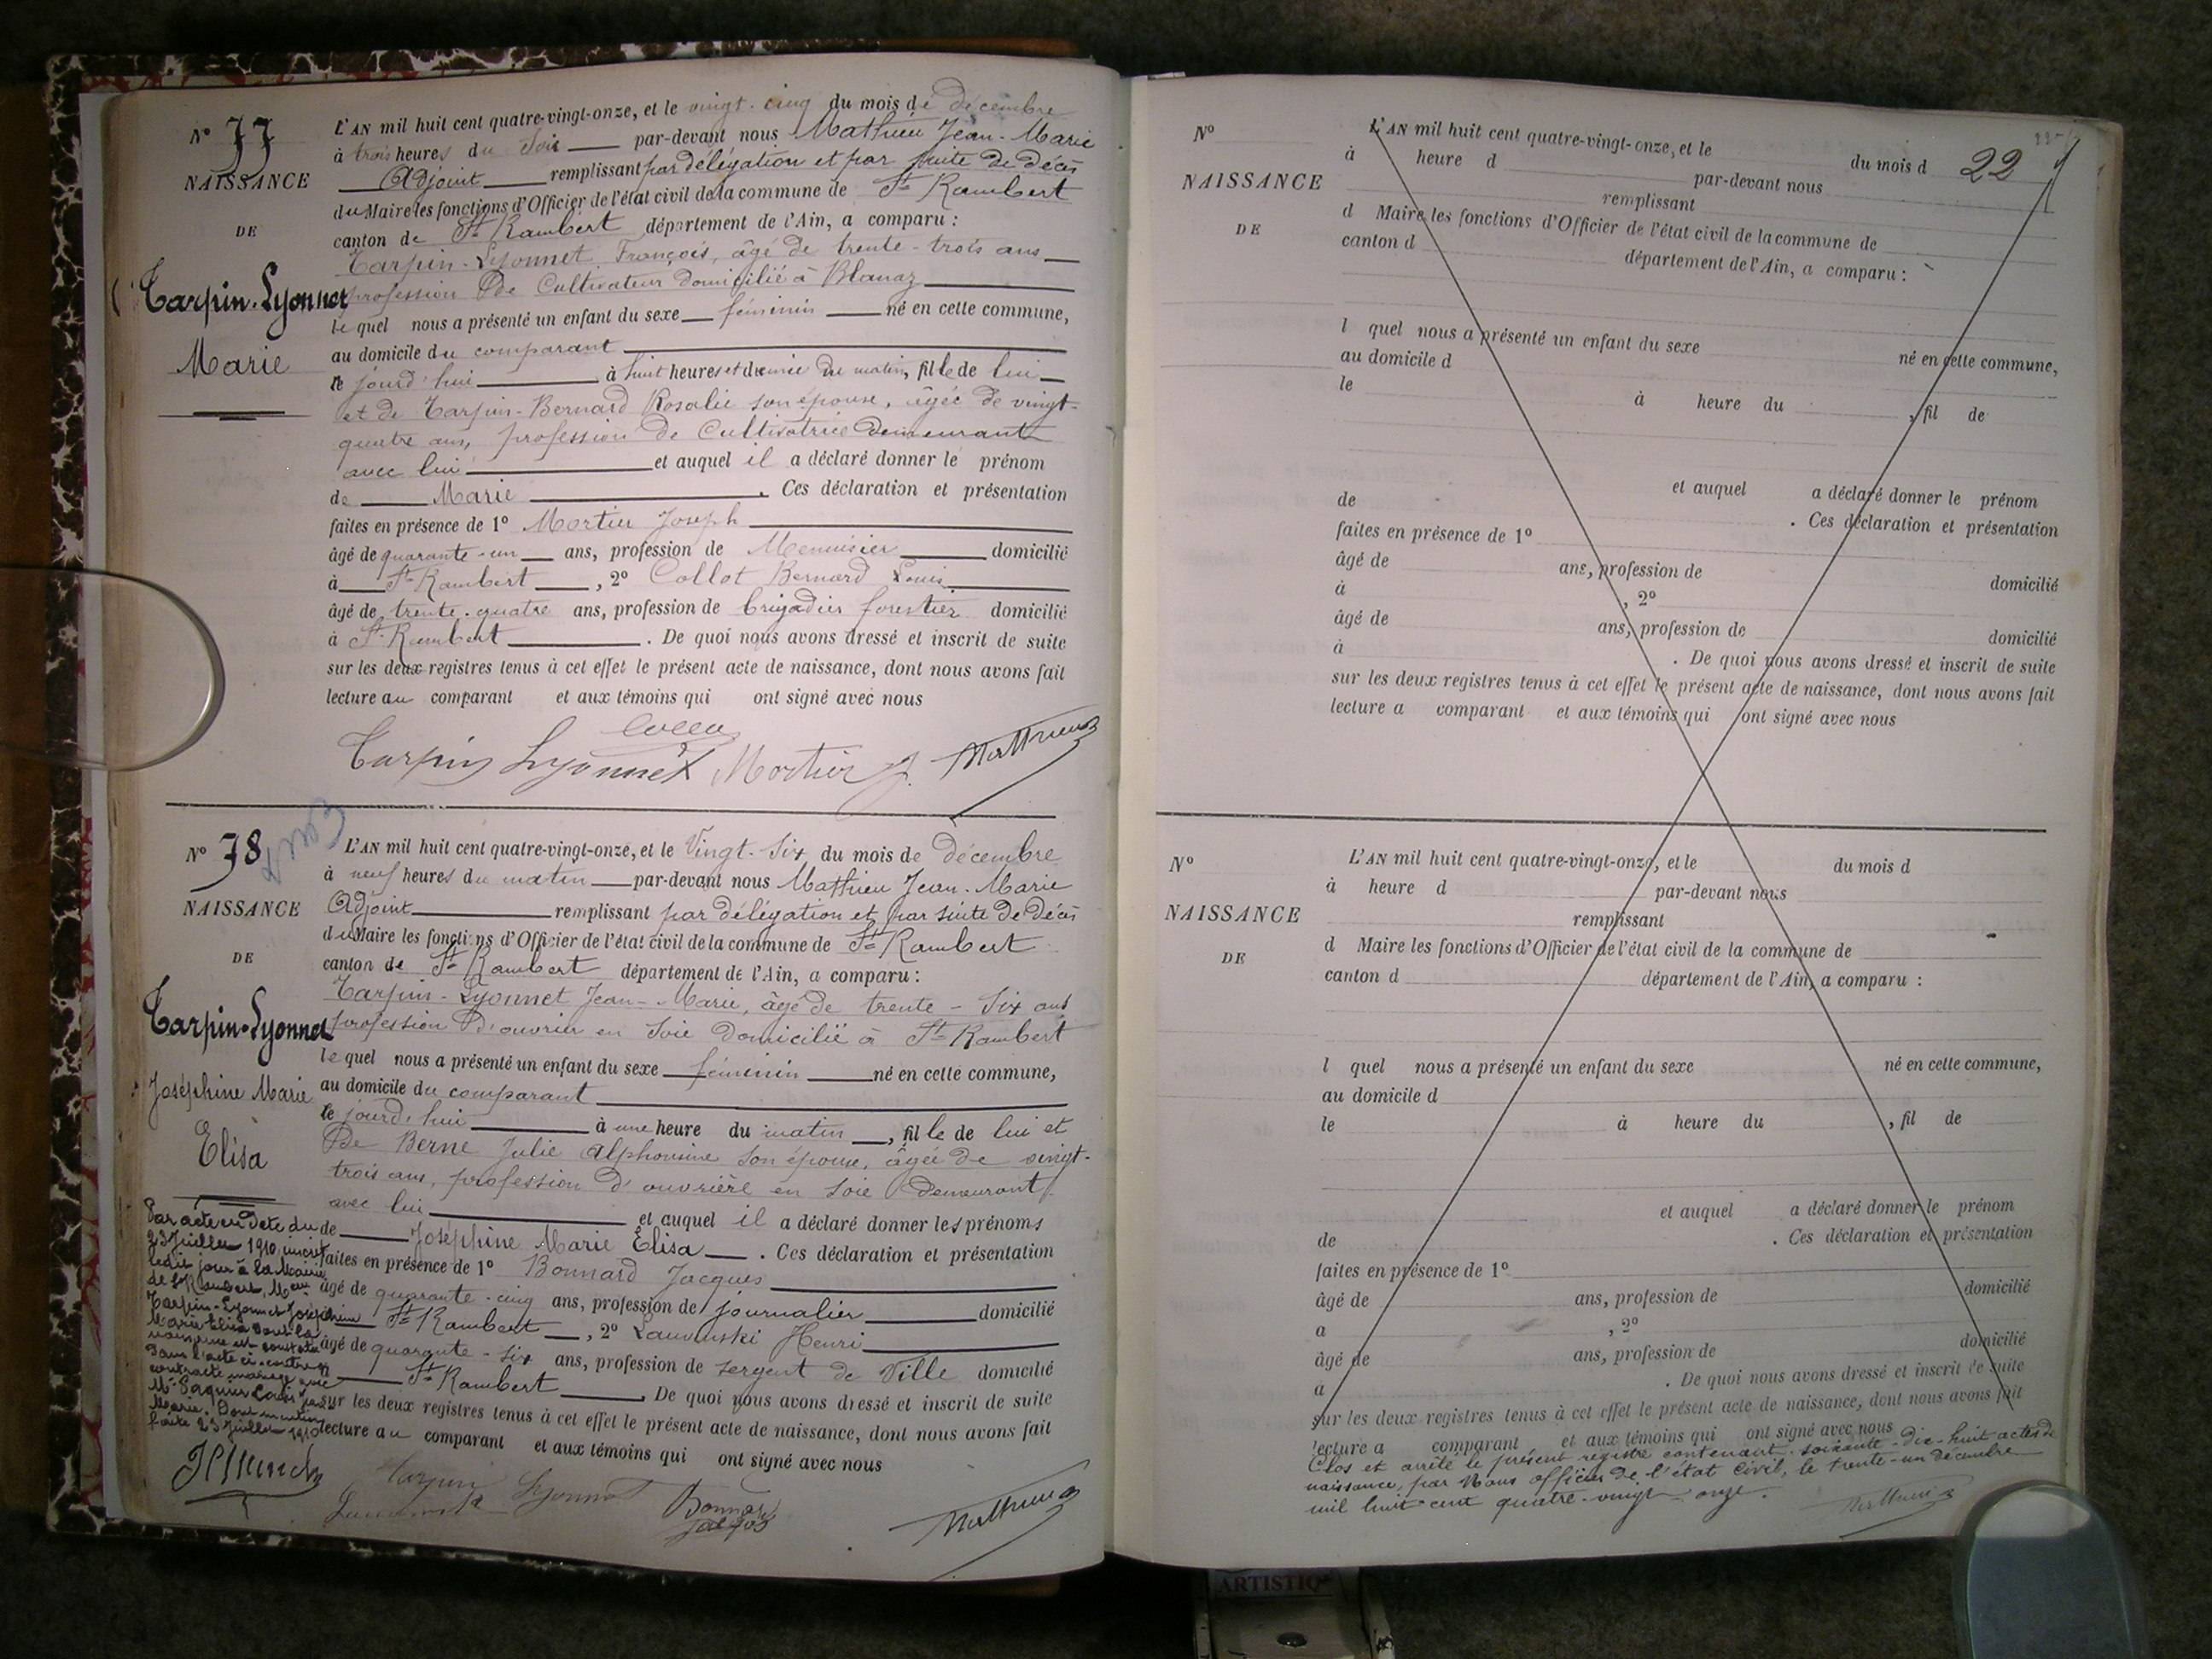 N° 77
NAISSANCE
DE
Tarpin-Lyonnet
Marie
L'AN mil huit cent quatre-vingt-onze, et le vingt-cinq du mois de décembre
à trois heures du soir par-devant nous Mathieu Jean-Marie
Adjoint remplissant par délégation et par suite de décès
du Maire les fonctions d'Officier de l'état civil de la commune de St Rambert
canton de St Rambert département de l'Ain, a comparu :
Tarpin-Lyonnet François, âgé de trente-trois ans
profession de Cultivateur domicilié à Blanaz
lequel nous a présenté un enfant du sexe féminin né en cette commune,
au domicile du comparant
le jourd'hui à huit heures et demie du matin, fille de lui
et de Tarpin-Bernard Rosalie son épouse, âgée de vingt-
quatre ans, profession de Cultivatrice demeurant
avec lui et auquel il a déclaré donner le prénom
de Marie . Ces déclaration et présentation
faites en présence de 1° Mortier Joseph
âgé de quarante-un ans, profession de Menuisier domicilié
à St Rambert , 2° Collot Bernard Louis
âgé de trente-quatre ans, profession de brigadier forestier domicilié
à St Rambert . De quoi nous avons dressé et inscrit de suite
sur les deux registres tenus à cet effet le présent acte de naissance, dont nous avons fait
lecture au comparant et aux témoins qui ont signé avec nous
Tarpin Lyonnet Mortier J. Mathieu
N° 78
NAISSANCE
DE
Tarpin-Lyonnet
Joséphine Marie
Elisa
L'AN mil huit cent quatre-vingt-onze, et le Vingt-Six du mois de décembre
à neuf heures du matin par-devant nous Mathieu Jean-Marie
Adjoint remplissant par délégation et par suite de décès
du Maire les fonctions d'Officier de l'état civil de la commune de St Rambert
canton de St Rambert département de l'Ain, a comparu :
Tarpin-Lyonnet Jean-Marie, âgé de trente-Six ans
profession d'ouvrier en Soie domicilié à St Rambert
lequel nous a présenté un enfant du sexe féminin né en cette commune,
au domicile du comparant
le jourd'hui à une heure du matin , fille de lui et
de Berne Julie Alphonsine son épouse, âgée de vingt-
trois ans, profession d'ouvrière en Soie demeurant
avec lui et auquel il a déclaré donner les prénoms
de Joséphine Marie Elisa . Ces déclaration et présentation
faites en présence de 1° Bonnard Jacques
âgé de quarante-cinq ans, profession de journalier domicilié
St Rambert , 2° Henri
âgé de quarante-six ans, profession de sergent de Ville domicilié
St Rambert . De quoi nous avons dressé et inscrit de suite
sur les deux registres tenus à cet effet le présent acte de naissance, dont nous avons fait
lecture au comparant et aux témoins qui ont signé avec nous
Par acte en date du
23 Juillet 1910 inscrit
ledit jour à la Mairie
de St Rambert, Melle
Tarpin-Lyonnet Joséphine
Marie Elisa dont la
naissance est constatée
dans l'acte ci-contre a
contracté mariage avec
Mr Louis
Marie. Dont mention
faite 23 Juillet 1910
Tarpin Lyonnet
Bonnard
Mathieu
22
N°
NAISSANCE
DE
L'AN mil huit cent quatre-vingt-onze, et le du mois d
à heure d par-devant nous
remplissant
d Maire les fonctions d'Officier de l'état civil de la commune de
canton d département de l'Ain, a comparu :
l quel nous a présenté un enfant du sexe né en cette commune,
au domicile d
le à heure du , fil de
et auquel a déclaré donner le prénom
de . Ces déclaration et présentation
faites en présence de 1°
âgé de ans, profession de domicilié
à , 2°
âgé de ans, profession de domicilié
à . De quoi nous avons dressé et inscrit de suite
sur les deux registres tenus à cet effet le présent acte de naissance, dont nous avons fait
lecture a comparant et aux témoins qui ont signé avec nous
N°
NAISSANCE
DE
L'AN mil huit cent quatre-vingt-onze, et le du mois d
à heure d par-devant nous
remplissant
d Maire les fonctions d'Officier de l'état civil de la commune de
canton d département de l'Ain, a comparu :
l quel nous a présenté un enfant du sexe né en cette commune,
au domicile d
le à heure du , fil de
et auquel a déclaré donner le prénom
de . Ces déclaration et présentation
faites en présence de 1°
âgé de ans, profession de domicilié
à , 2°
âgé de ans, profession de domicilié
à . De quoi nous avons dressé et inscrit de suite
sur les deux registres tenus à cet effet le présent acte de naissance, dont nous avons fait
lecture a comparant et aux témoins qui ont signé avec nous
Clos et arrêté le présent registre contenant soixante-dix-huit actes de
naissance, par Nous officier de l'état civil, le trente-un décembre
mil huit cent quatre-vingt-onze.
Mathieu
ARTISTIQ